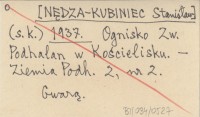 [NĘDZA-KUBINIEC Stanisław]
(s.k.) 1937. Ognisko Zw.
Podhalan w Kościelisku. —
Ziemia Podh. 2, nr 2.
Gwarą.